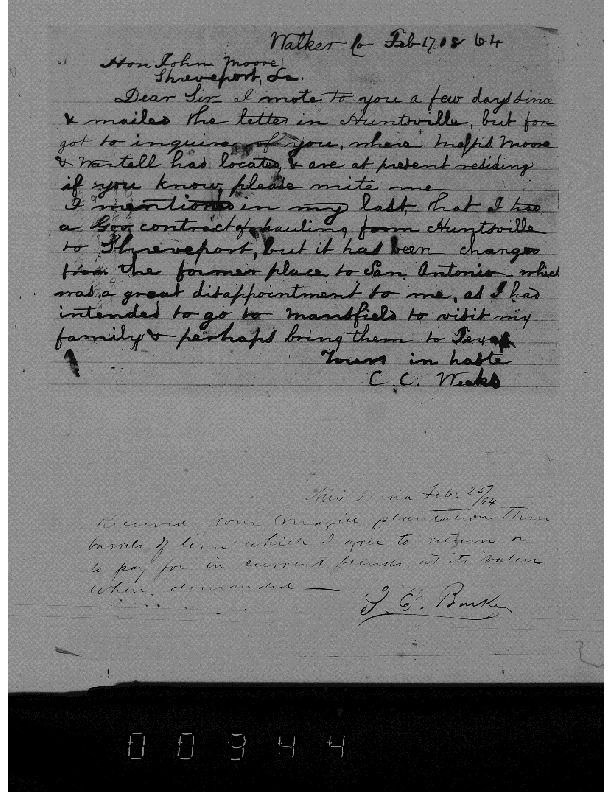 Walker Co Feb 17 1864
Hon John Moore,
Shreveport, La.
Dear Sir I wrote to you a few days since
& mailed the letter in Huntsville, but for-
got to inquire of you, where Mess Moore
& Wontell had located, & are at present residing
if you know please write me
I mentioned in my last, that I had
a Gov contract of hauling from Huntsville
to Shreveport, but it has been changed
from the former place to San Antonio which
was a great disappointment to me, as I had
intended to go to Mansfield to visit my
family & perhaps bring them to Texas
Yours in haste
C. C. Weeks
Feb. 25th/64
Received plantation Three
barrels of which I agree to return or
to pay for in current funds at its value
when demanded —
Burke
00944